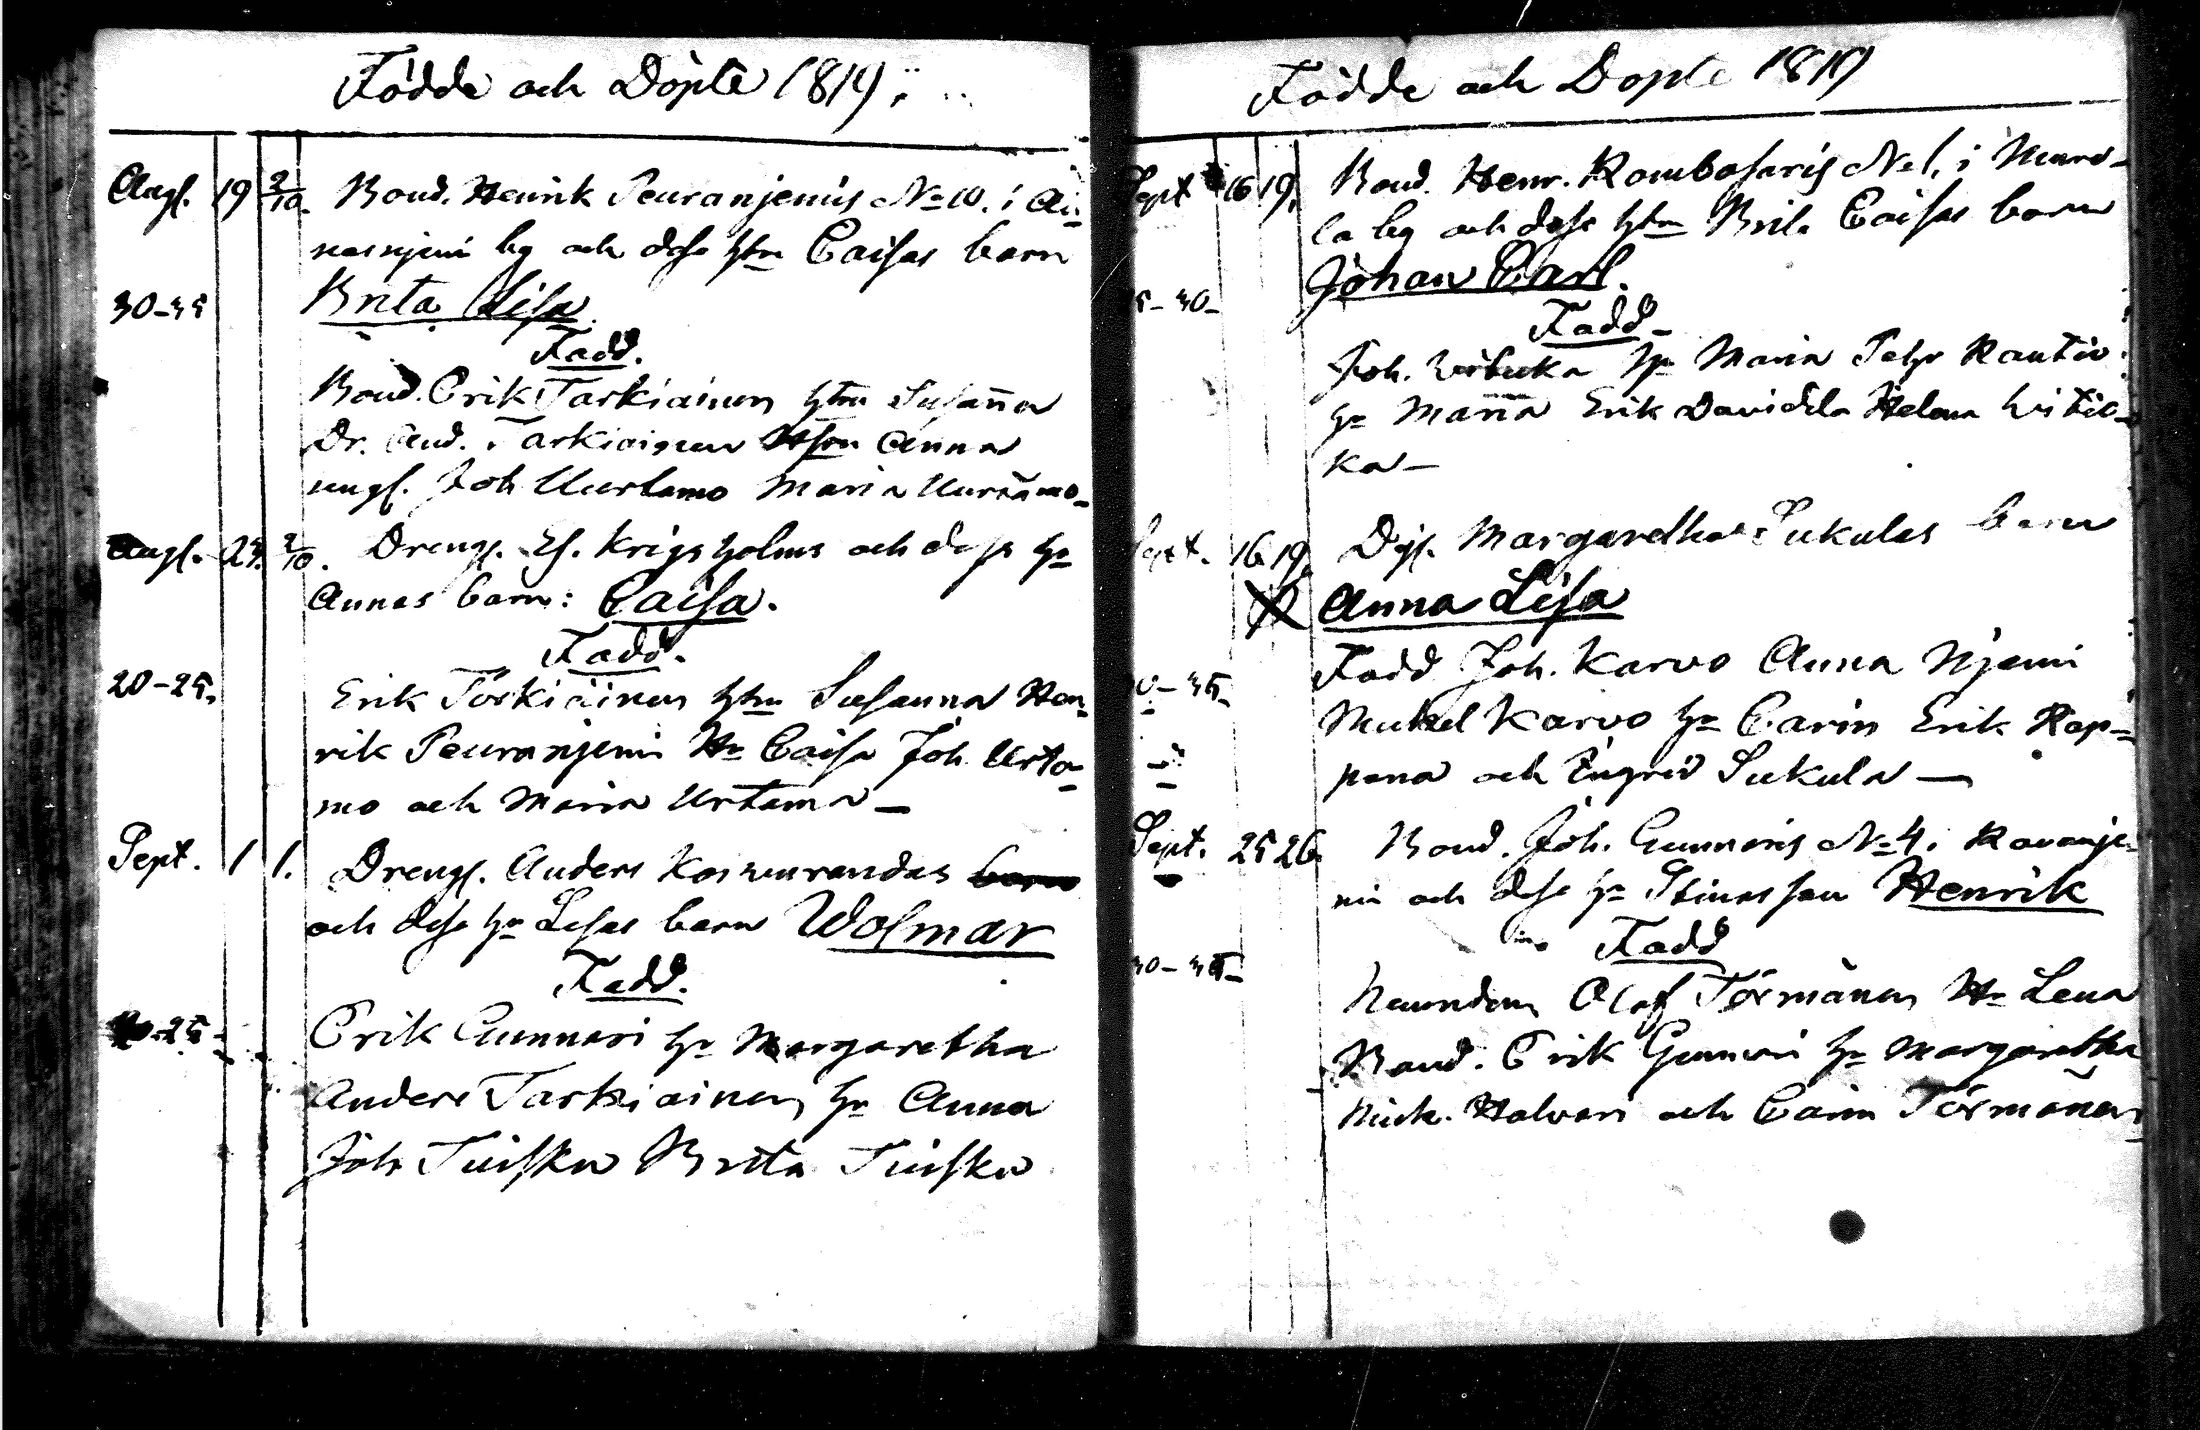 Födde och Döpte 1819.
Augs. 19 2/10. Bond. Henrik Peuranjemis No 10. i Au-
nasnjemi by och dess hstru Caisas barn
30-35 Brita Lisa
Fadd.
Bond. Erik Tarkiainen hstru Susanna
Dr. And. Tarkiainen Hstru Anna
ungk. Joh Uurtamo Maria Uurtamo-
Augs. 29. 2/10. Drengs. Es. Krigsholms och dess hu
Annas barn: Caisa.
Fadd.
20-25. Erik Torkiainen hstru Susanna Hen-
rik Peuranjemi Hu Caisa Joh Urta-
mo och Maria Urtama-
Sept. 1 1. Drengs. Anders barn
och dess hu Lisas barn Wolmar
Fadd.
20-25- Erik Gunnari hu Margaretha
Anders Tarkiainen hu Anna
Joh Tuisku Brita Tuisku
Födde och Döpte 1819
Sept 16 19. Bond. Henr. Rombasaris No 1. i Muro-
la by och dess hstru Brita Caisas barn
Johan Carl.
5-30-
Fadd-
Joh. hu Maria Petr Rautio
hu Maria Erik Davidila Helena
ka-
Sept. 16 19. Pigs. Margaretha Sukulas barn
Anna Lisa
Fadd Joh. Karvo Anna Njemi
0-35- Mickel Karvo hu Carin Erik Rap-
pana och Ingrid Sukula-
Sept. 25 26. Bond. Joh. Gunnaris No 4. i Rovanje-
mi och dess hu Stinas son Henrik
Fadd
30-35-
Nemndem Olof Törmänen Hu Lena
Bond. Erik Gunnari hu Margaretha
Mick. Halvari och Carin Törmänen